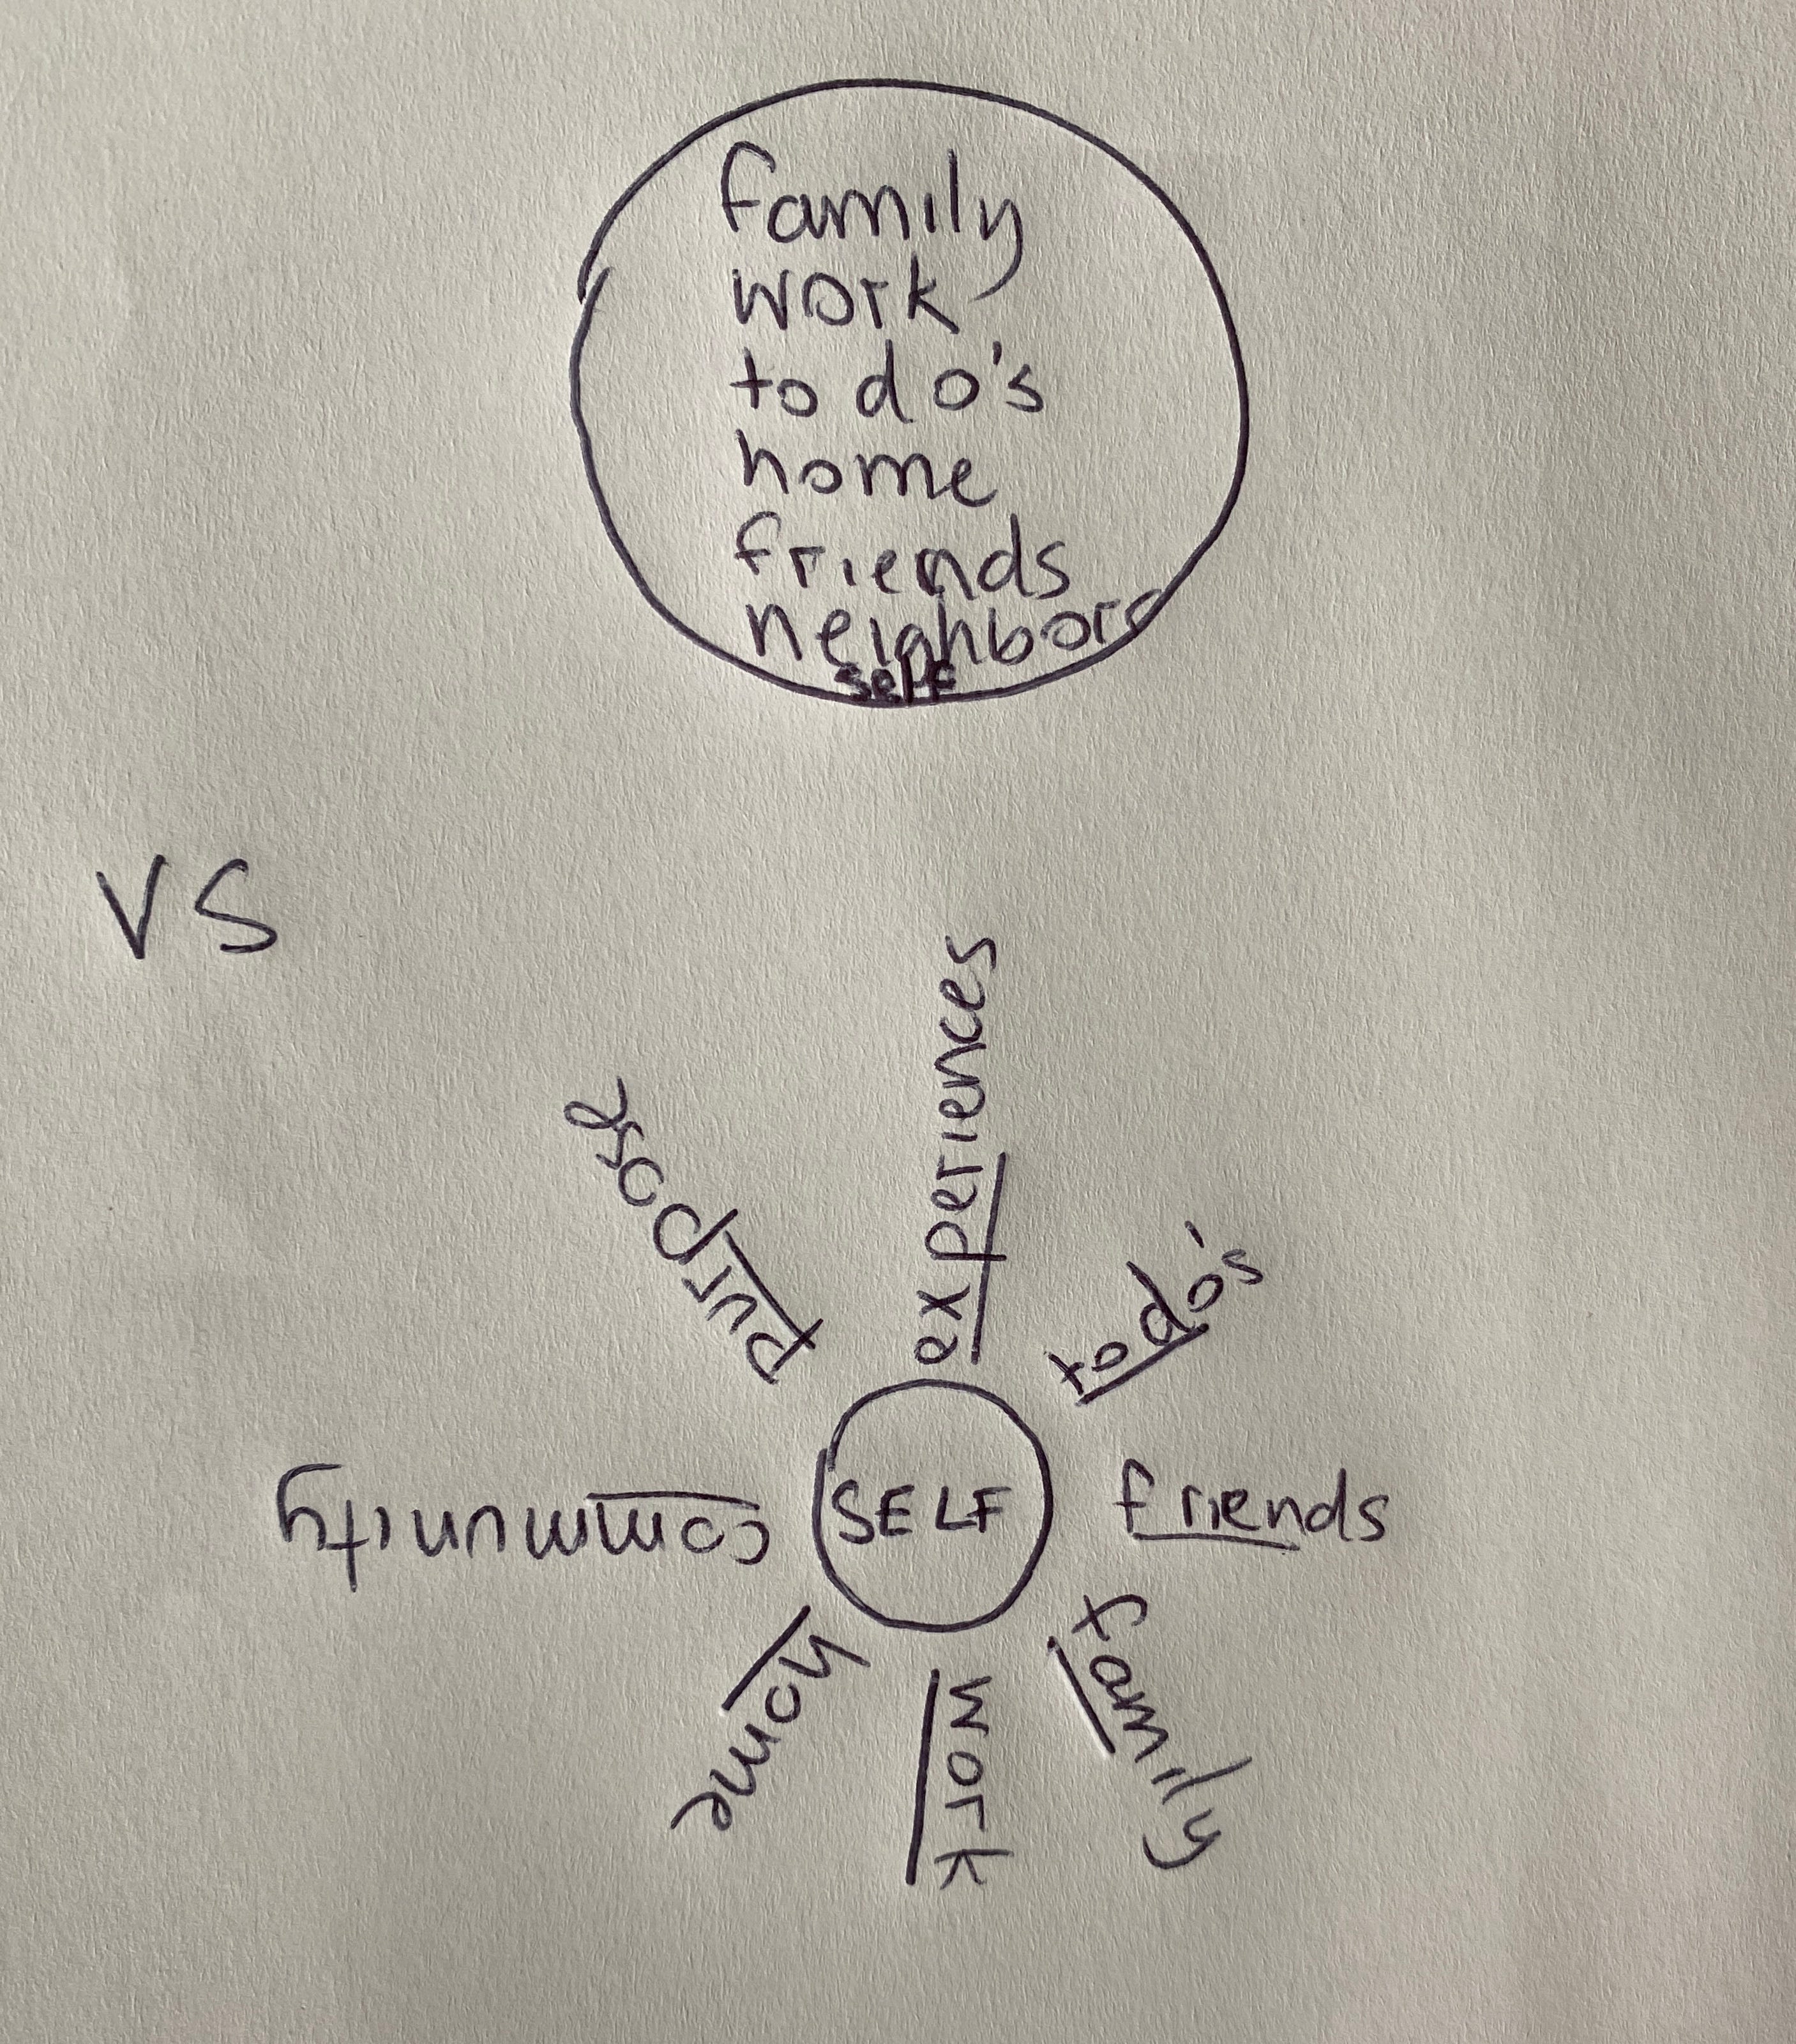 family
work
to do's
home
friends
neighbors
self
VS
experiences
purpose
to do's
community
SELF
friends
home
work
family